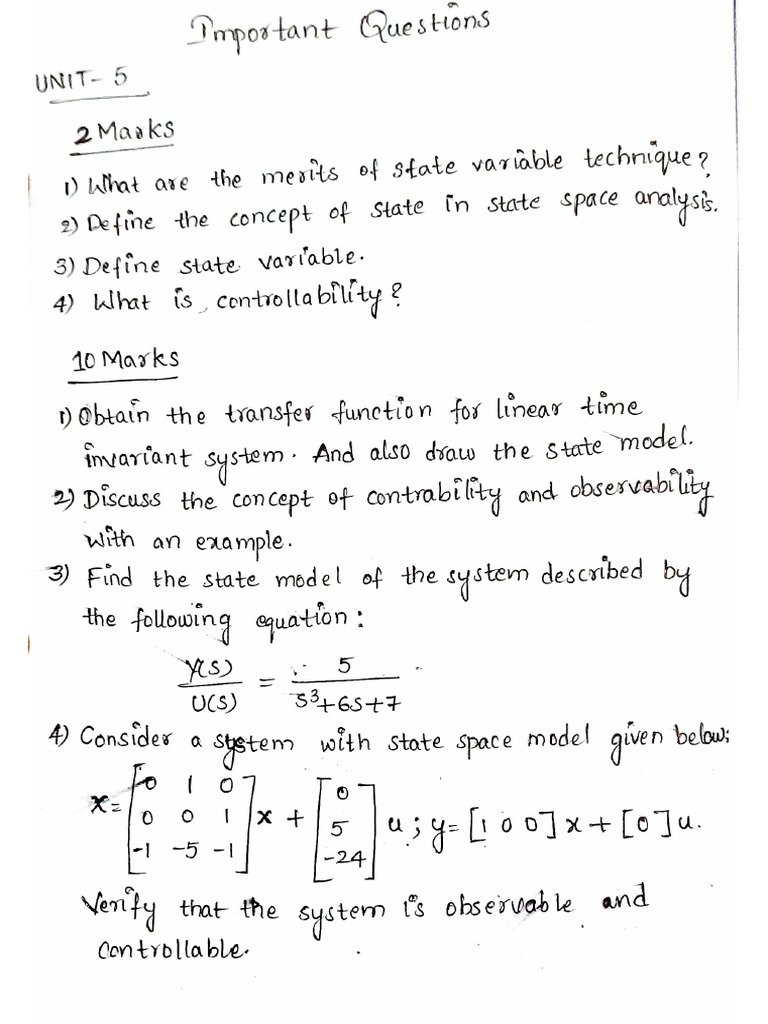 Important Questions
UNIT- 5
2 Marks
1) What are the merits of state variable technique?
2) Define the concept of state in state space analysis.
3) Define state variable.
4) What is controllability?
10 Marks
1) Obtain the transfer function for linear time
invariant system. And also draw the state model.
2) Discuss the concept of contrability and observability
with an example.
3) Find the state model of the system described by
the following equation:
Y(S)/U(S) = 5/S³+6S+7
4) Consider a system with state space model given below:
x = [0 1 0
0 0 1
-1 -5 -1] x + [0
5
-24] u ; y= [1 0 0] x + [0] u.
Verify that the system is observable and
controllable.